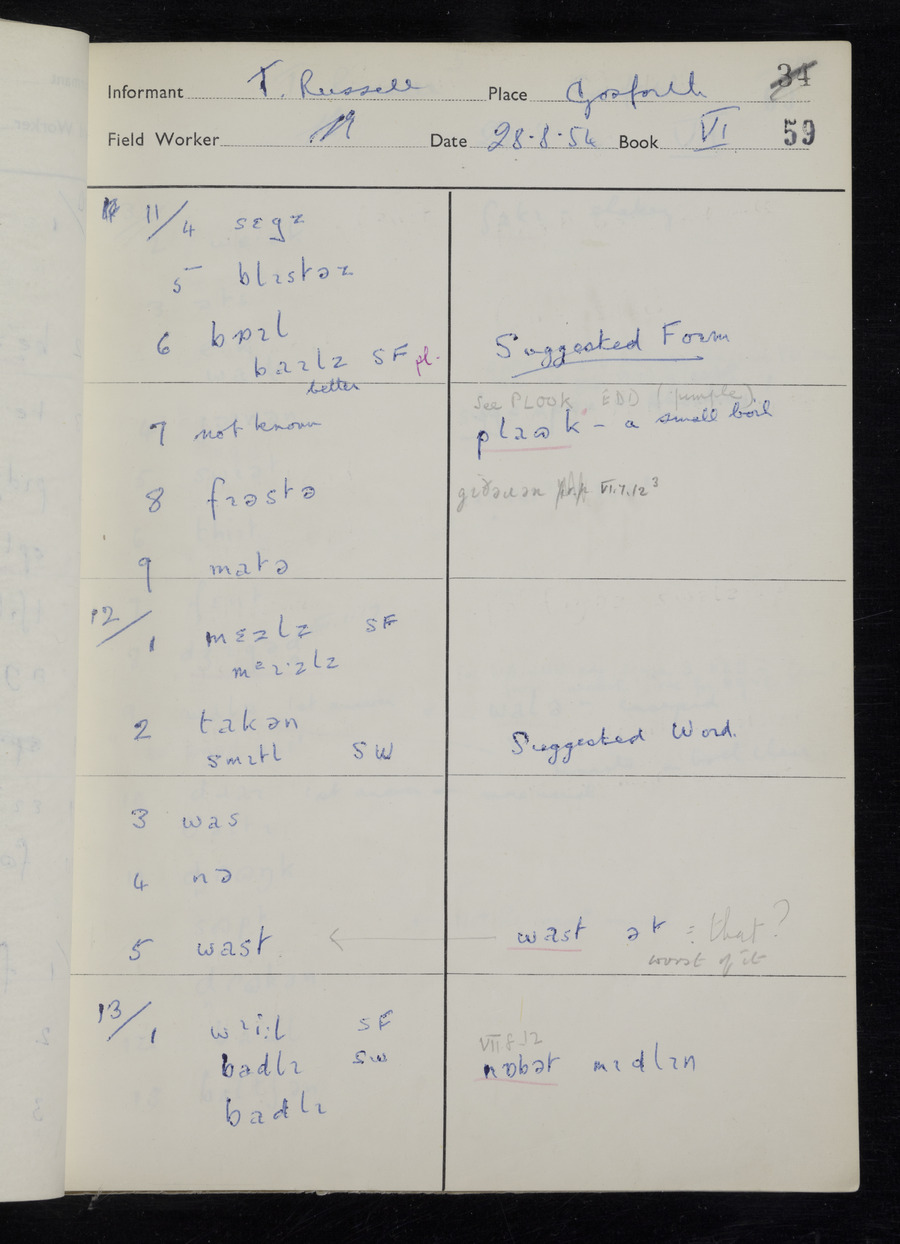 Informant T. Russell Place Gosforth 34
Field Worker Date 28-8-54 Book VI 59
11/4 sɛgz
5 blɪstəz
6 bɒɪl
baɪlz SF pl. Suggested Form
better
7 not known See PLOOK EDD (pimple).
plɪʊk - a small boil
8 fɪəstə VI.7.12³
9 matə
12/1 mɛzlz SF
mᵊɪ·zlz
2 takən
smɪtl SW Suggested Word.
3 was
4 nə
5 wast ← wast ət : that?
worst of it
13/1 wᵊi:l SF
badlɪ SW VII 8.12
nɒbət mɪdlɪn
badlɪ